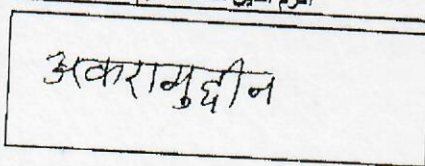 अकरामुद्दीन